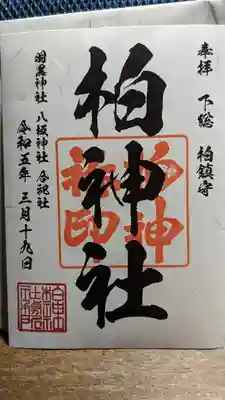 奉拝 下総 柏鎮守
柏神社
柏神社印
羽黒神社 八坂神社 合祀社
令和五年 三月十九日